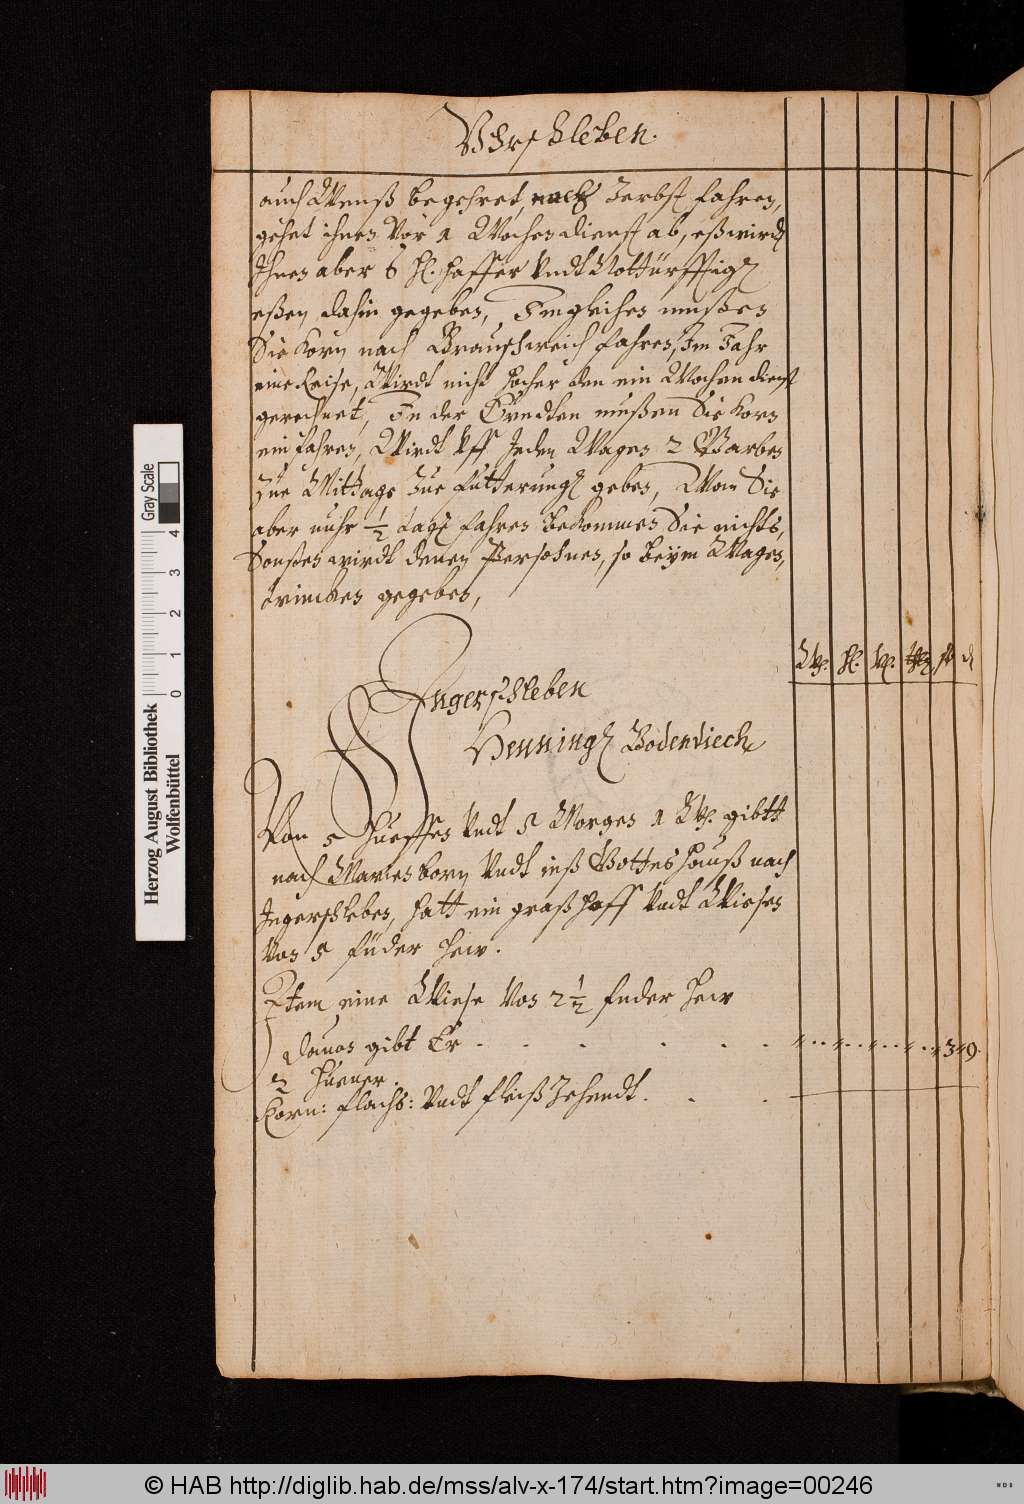 Uhrschleben.
auch Wenß begehret, nach Zerbst fahren,
gehet ihnen Vor 1 Wochen dienst ab, eß wird
Ihnen aber 6 hl. haffer Vndt Nottürfftig
eßen dahin gegeben, Imgleichen mußen
Sie Korn nach Braunschweich fahren, Im Jahr
eine Reise, Wirdt nicht hocher den ein Wochen dienst
gerechnet, In der Erndten mußen Sie Korn
ein fahren, Wirdt Vff Jeden Wagen 2 Garben
Zue Mittage Zue futterung geben, Wan Sie
aber nuhr ½ tage fahren bekommen Sie nichts,
Sonsten wirdt denen Persohnen, so beym Wagen,
trincken gegeben,
Wsp. hl. Vß. fl d
Ingerschleben
Henning Bodendiech
Von 5 hueffen Vndt 5 Morgen 1 Wsp. gibtt
nach Marienborn Vndt inß Gotteshauß nach
Ingerschleben, hatt ein graßhoff Vndt Wiesen
Von 5 füder hew.
Item eine Wiese Von 2½ fuder hew
dauon gibt Er . . . . . 3 9.
2 Huener.
Korn: flachß: Vndt fleiß Zehendt . . .
Gray Scale
0 1 2 3 4
Herzog August Bibliothek
Wolfenbüttel
© HAB http://diglib.hab.de/mss/alv-x-174/start.htm?image=00246